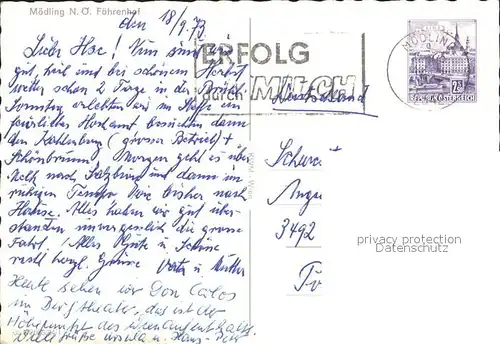 Mödling N. Ö. Föhrenhof
den 18/9.73
Liebe Ilse! Nun sind wir
gut heil und bei schönem Herbst
wetter schon 2 Tage in der
Sonntag erlebten wir im
feierliches Hochamt, besuchten dann
den Kahlenberg (grosser Betrieb) +
Schönbrunn. Morgen geht es über
Melk nach Salzburg und dann im
ruhigen Tempo wie bisher nach
Hause. Alles haben wir gut über-
standen unvergesslich die grosse
Fahrt! Alles Gute u.
recht herzl. Grüsse Vater u. Mutter
Heute sehen wir Don Carlos
im Burgtheater, das ist der
Höhepunkt des Wienaufenthalts.
Viele Grüße Ursula u. Hans-
ERFOLG
durch MILCH
Deutschland
MÖDLING
REPUBLIK ÖSTERREICH
Schwe
3492
privacy protection
Datenschutz